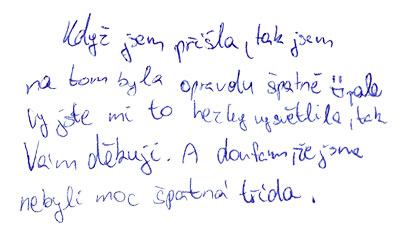 Když jsem přišla, tak jsem
na tom byla opravdu špatně Ü, ale
vy jste mi to hezky vysvětlila, tak
Vám děkuji. A doufám, že jsme
nebyli moc špatná třída.